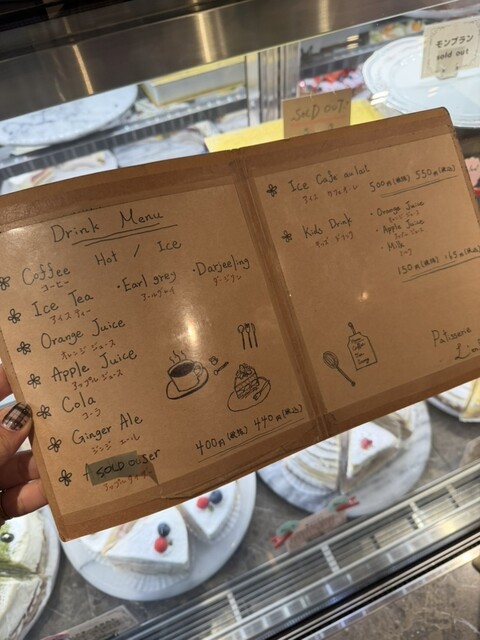 Drink Menu
Coffee Hot / Ice
コーヒー
Ice Tea ・Earl grey ・Darjeeling
アイスティー アールグレイ ダージリン
Orange Juice
オレンジジュース
Apple Juice
アップルジュース
Cola
コーラ
Ginger Ale
ジンジャエール
SOLD OUT
400円(税抜) 440円(税込)
Ice Cafe au lait
アイス カフェオレ
500円(税抜) 550円(税込)
Kids Drink
キッズ ドリンク
・Orange Juice
オレンジジュース
・Apple Juice
アップルジュース
・Milk
ミルク
150円(税抜) 165円(税込)
Patisserie
SOLD OUT
モンブラン
sold out